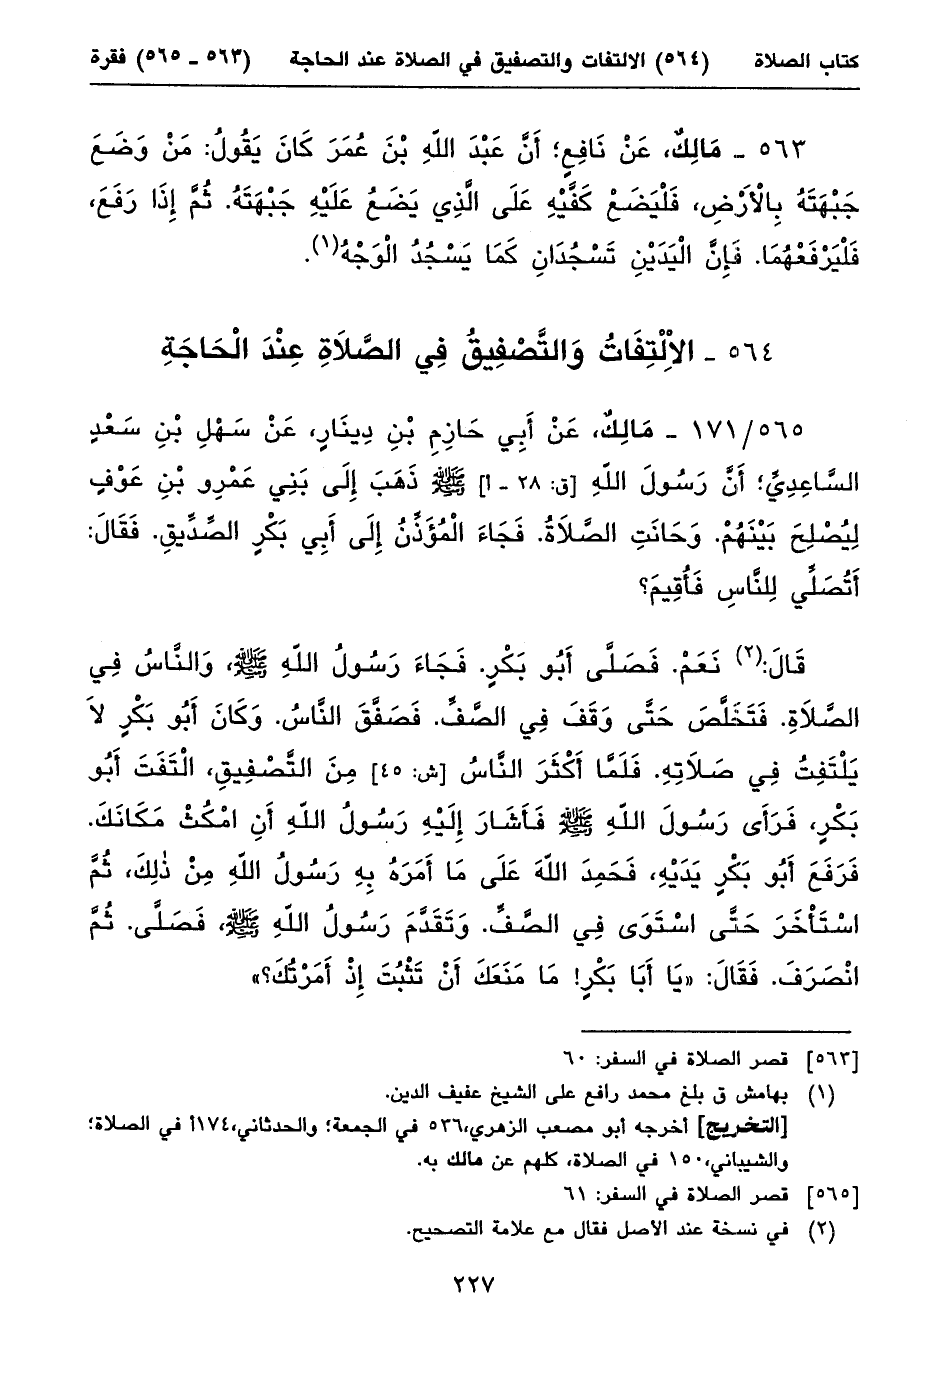 كتاب الصلاة (٥٦٤) الالتفات والتصفيق في الصلاة عند الحاجة (٥٦٣ ـ ٥٦٥) فقرة
٥٦٣ ـ مَالِكٌ، عَنْ نَافِعٍ؛ أَنَّ عَبْدَ اللّهِ بْنَ عُمَرَ كَانَ يَقُولُ: مَنْ وَضَعَ
جَبْهَتَهُ بِالْأَرْضِ، فَلْيَضَعْ كَفَّيْهِ عَلَى الَّذِي يَضَعُ عَلَيْهِ جَبْهَتَهُ. ثُمَّ إِذَا رَفَعَ،
فَلْيَرْفَعْهُمَا. فَإِنَّ الْيَدَيْنِ تَسْجُدَانِ كَمَا يَسْجُدُ الْوَجْهُ(١).
٥٦٤ ـ الاِلْتِفَاتُ وَالتَّصْفِيقُ فِي الصَّلَاةِ عِنْدَ الْحَاجَةِ
١٧١/٥٦٥ ـ مَالِكٌ، عَنْ أَبِي حَازِمِ بْنِ دِينَارٍ، عَنْ سَهْلِ بْنِ سَعْدٍ
السَّاعِدِيِّ؛ أَنَّ رَسُولَ اللّهِ [ق: ٢٨ ـ أ] ﷺ ذَهَبَ إِلَى بَنِي عَمْرِو بْنِ عَوْفٍ
لِيُصْلِحَ بَيْنَهُمْ. وَحَانَتِ الصَّلَاةُ. فَجَاءَ الْمُؤَذِّنُ إِلَى أَبِي بَكْرٍ الصِّدِّيقِ. فَقَالَ:
أَتُصَلِّي لِلنَّاسِ فَأُقِيمَ؟
قَالَ:(٢) نَعَمْ. فَصَلَّى أَبُو بَكْرٍ. فَجَاءَ رَسُولُ اللّهِ ﷺ، وَالنَّاسُ فِي
الصَّلَاةِ. فَتَخَلَّصَ حَتَّى وَقَفَ فِي الصَّفِّ. فَصَفَّقَ النَّاسُ. وَكَانَ أَبُو بَكْرٍ لاَ
يَلْتَفِتُ فِي صَلَاتِهِ. فَلَمَّا أَكْثَرَ النَّاسُ [ش: ٤٥] مِنَ التَّصْفِيقِ، الْتَفَتَ أَبُو
بَكْرٍ، فَرَأَى رَسُولَ اللّهِ ﷺ فَأَشَارَ إِلَيْهِ رَسُولُ اللّهِ أَنِ امْكُثْ مَكَانَكَ.
فَرَفَعَ أَبُو بَكْرٍ يَدَيْهِ، فَحَمِدَ اللّهَ عَلَى مَا أَمَرَهُ بِهِ رَسُولُ اللّهِ مِنْ ذٰلِكَ، ثُمَّ
اسْتَأْخَرَ حَتَّى اسْتَوَى فِي الصَّفِّ. وَتَقَدَّمَ رَسُولُ اللّهِ ﷺ، فَصَلَّى. ثُمَّ
انْصَرَفَ. فَقَالَ: «يَا أَبَا بَكْرٍ! مَا مَنَعَكَ أَنْ تَثْبُتَ إِذْ أَمَرْتُكَ؟»
[٥٦٣] قصر الصلاة في السفر: ٦٠
(١) بهامش ق بلغ محمد رافع على الشيخ عفيف الدين.
[التخريج] أخرجه أبو مصعب الزهري،٥٣٦ في الجمعة؛ والحدثاني،١٧٤أ في الصلاة؛
والشيباني،١٥٠ في الصلاة، كلهم عن مالك به.
[٥٦٥] قصر الصلاة في السفر: ٦١
(٢) في نسخة عند الأصل فقال مع علامة التصحيح.
٢٢٧